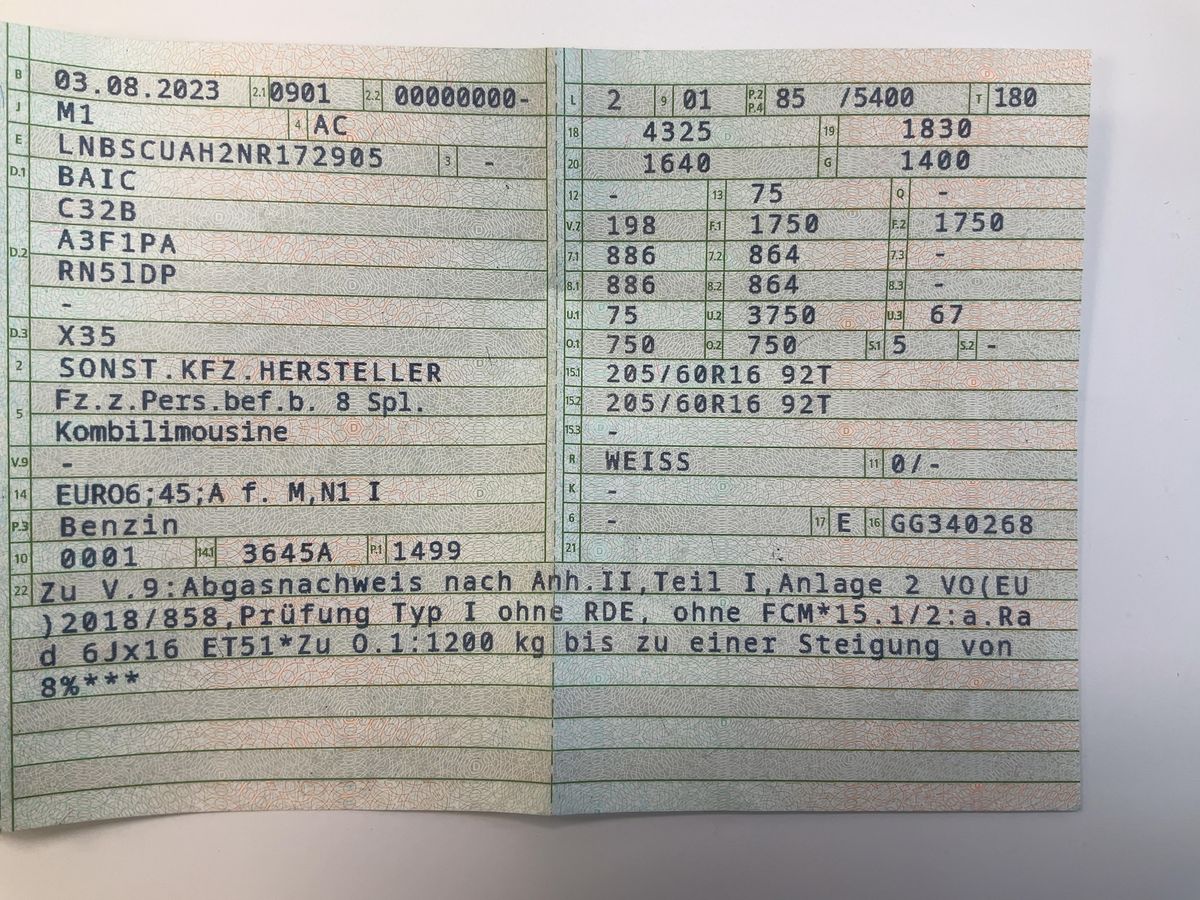 B 03.08.2023 2.1 0901 2.2 00000000-
J M1 4 AC
E LNBSCUAH2NR172905 3 -
D.1 BAIC
D.2 C32B
A3F1PA
RN51DP
-
D.3 X35
2 SONST.KFZ.HERSTELLER
5 Fz.z.Pers.bef.b. 8 Spl.
Kombilimousine
V.9 -
14 EURO6;45;A f. M,N1 I
P.3 Benzin
10 0001 14.1 3645A P.1 1499
L 2 9 01 P.2 P.4 85 /5400 T 180
18 4325 19 1830
20 1640 G 1400
12 - 13 75 Q -
V.7 198 F.1 1750 F.2 1750
7.1 886 7.2 864 7.3 -
8.1 886 8.2 864 8.3 -
U.1 75 U.2 3750 U.3 67
O.1 750 O.2 750 S.1 5 S.2 -
15.1 205/60R16 92T
15.2 205/60R16 92T
15.3 -
R WEISS 11 0/-
K -
6 - 17 E 16 GG340268
21
22 Zu V.9:Abgasnachweis nach Anh.II,Teil I,Anlage 2 VO(EU
)2018/858,Prüfung Typ I ohne RDE, ohne FCM*15.1/2:a.Ra
d 6Jx16 ET51*Zu O.1:1200 kg bis zu einer Steigung von
8%***